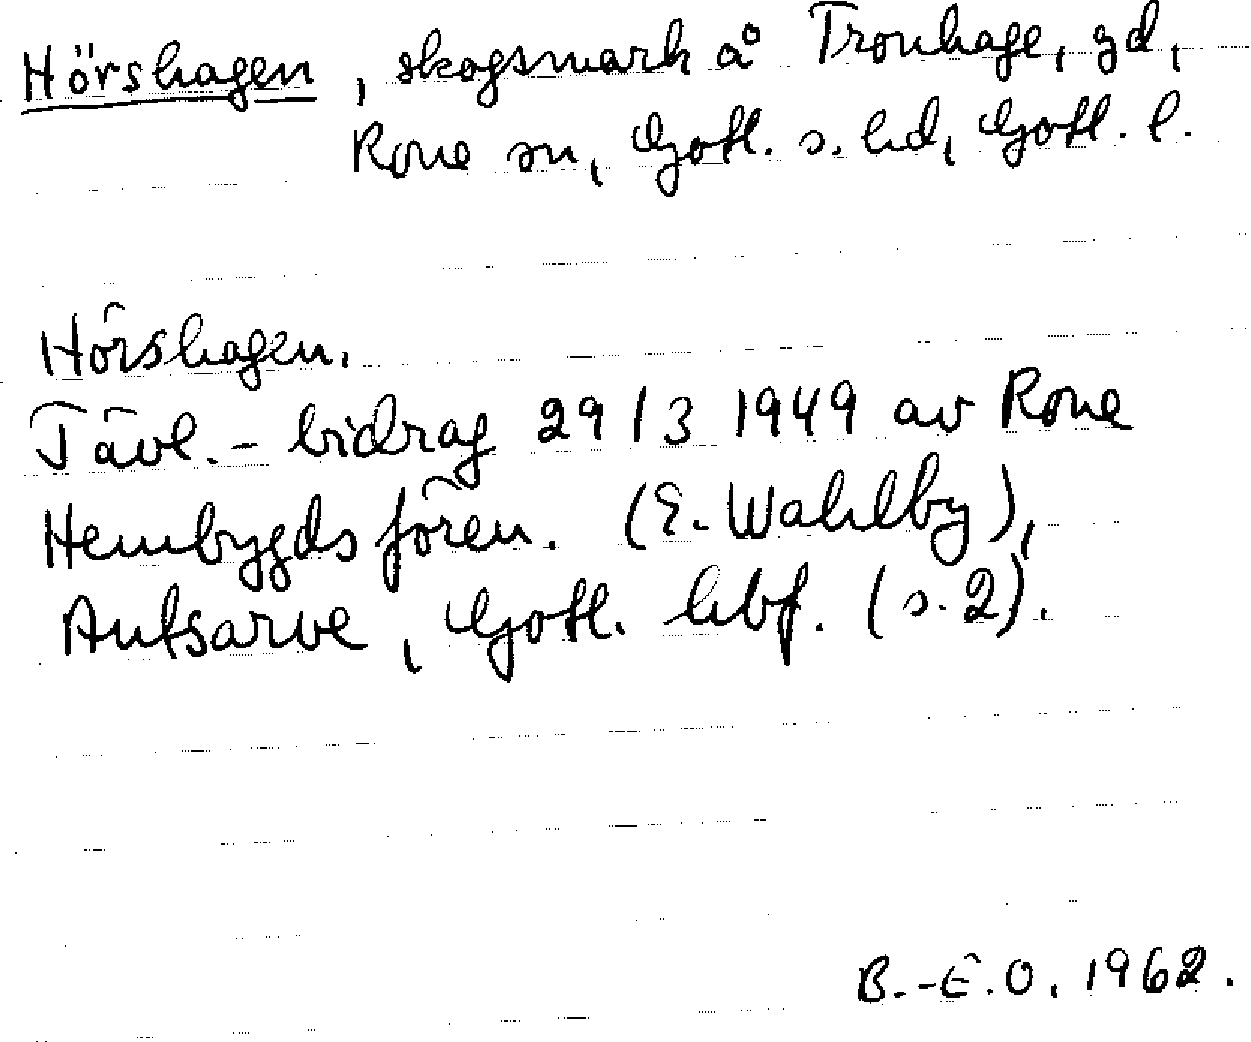 Hörshagen, skogsmark å Tronhage, gd,
Rone sn, Gotl. s. hd, Gotl. l.
Hörshagen.
Tävl.-bidrag 29/3 1949 av Rone
Hembygdsfören. (E. Wahlby),
Autsarve, Gotl. hbf. (s. 2).
B.-E. O. 1962.